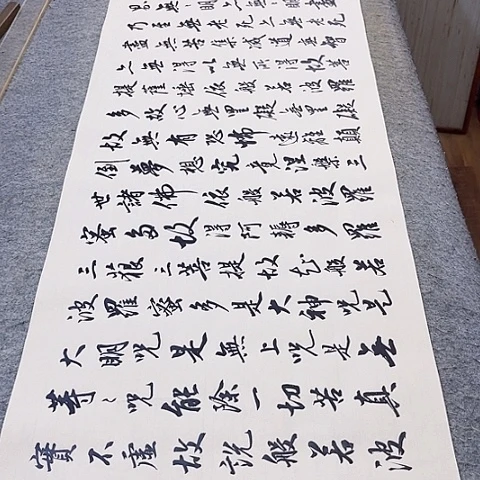 界無〻明亦無〻明盡
乃至無老死亦無老死
盡無苦集滅道無智
亦無得以無所得故菩
提薩埵依般若波羅
多故心無罣礙無罣礙
故無有恐怖遠離顛
倒夢想究竟涅槃三
世諸佛依般若波羅
蜜多故得阿耨多羅
三藐三菩提故知般若
波羅蜜多是大神咒是
大明咒是無上咒是無
等〻咒能除一切苦真
實不虛故說般若波